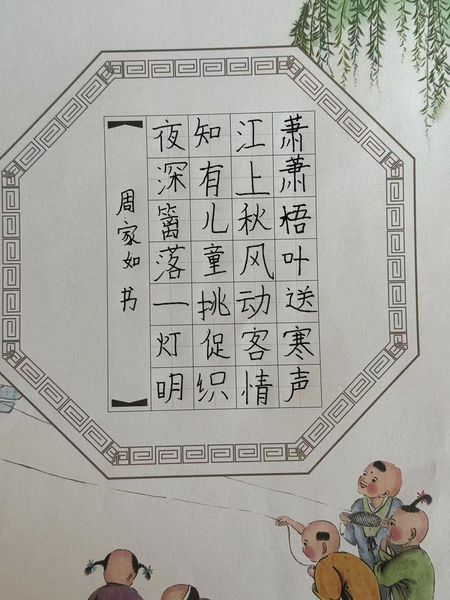 萧萧梧叶送寒声
江上秋风动客情
知有儿童挑促织
夜深篱落一灯明
周家如书